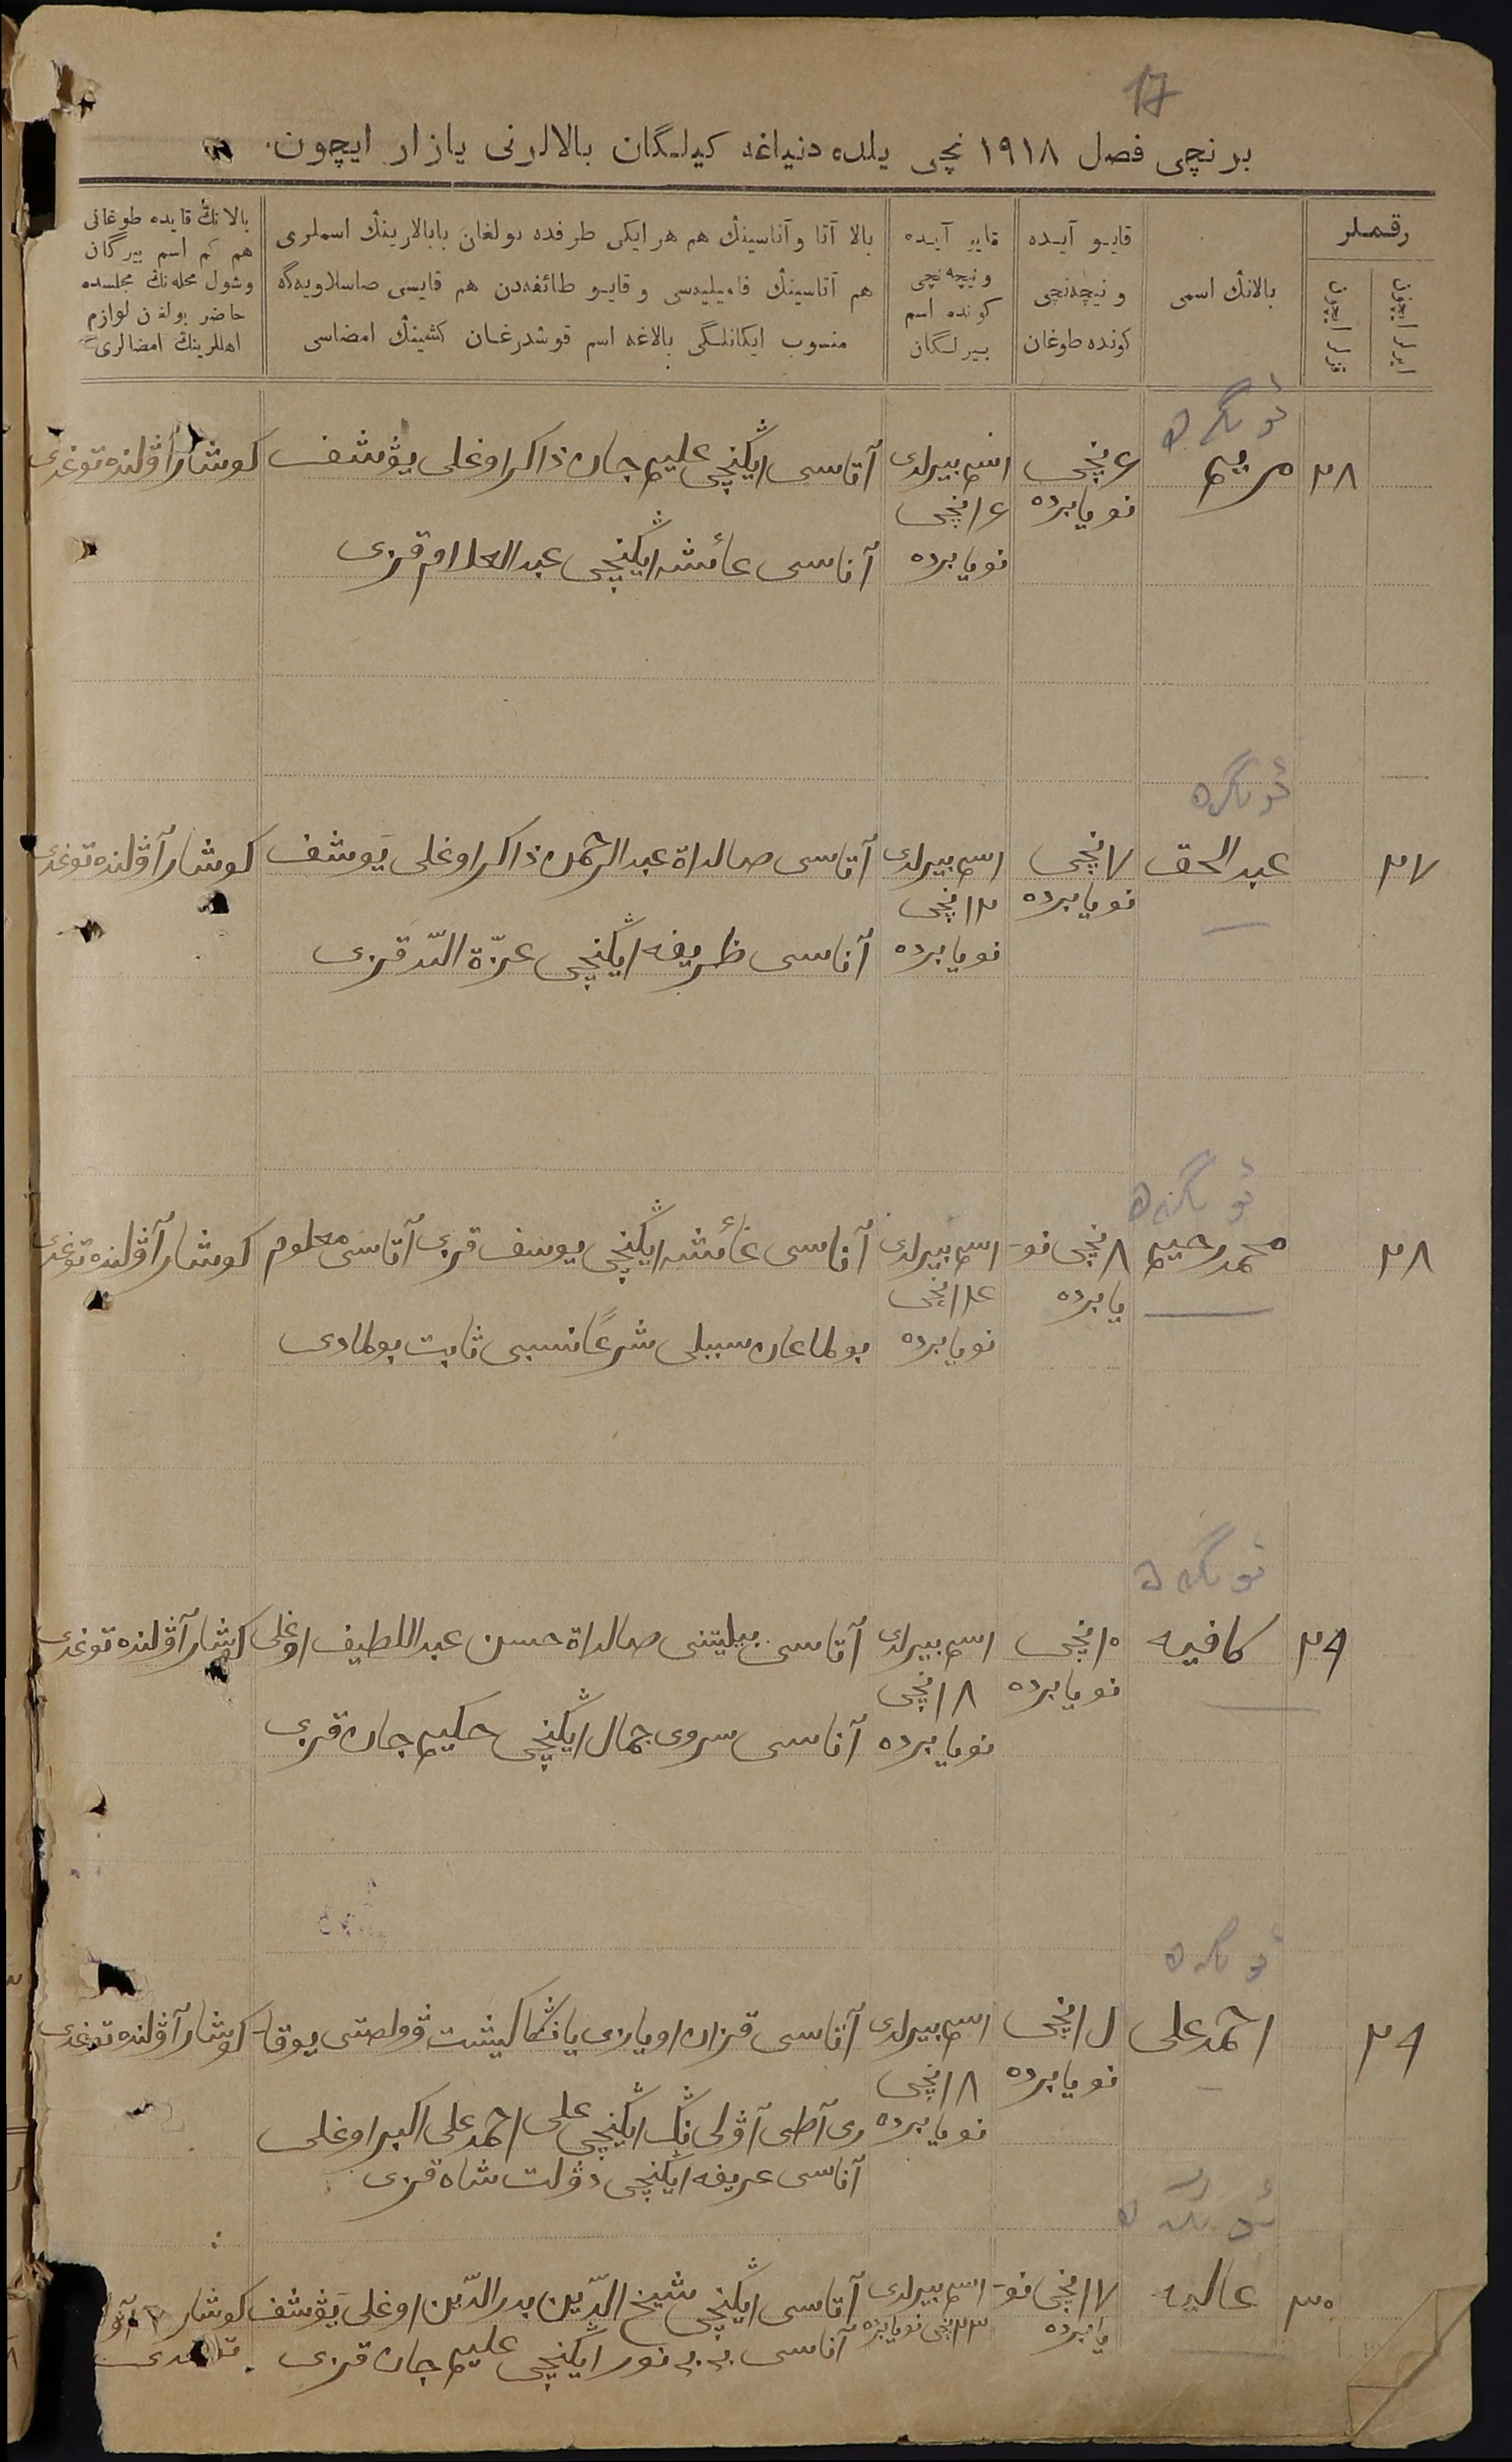 17
برنچی فصل ١٩١٨ نچی یلده دنیاغه کیلگان بالالرنی یازار ایچون.
رقملر
ایرلر ایچون
قزلر ایچون
بالانڭ اسمی
قایو آیده
و نیچه‌نچی
کونده طوغان
قایو آیده
و نیچه‌نچی
کونده اسم
بیرلگان
بالا آتا و آناسینڭ هم هر ایکی طرفده بولغان بابالارینڭ اسملری
هم آتاسینڭ فامیلیه‌سی و قایو طائفه‌دن هم قایسی صاسلاویه‌گه
منسوب ایکانلگی بالاغه اسم قوشدرغان کشینڭ امضاسی
بالانڭ قایده طوغانی
هم کم اسم بیرگان
و شول محله‌نڭ مجلسده
حاضر بولغن لوازم
اهللرینڭ امضالری
٢٨
مریم
٤نچی
نویابرده
اسم بیرلدی
١٤نچی
نویابرده
آتاسی ایگنچی علیم جان ذاکر اوغلی یوْسف
آناسی عائشه ایگنچی عبد العلام قزی
کوشار آوْلنده توغدی
٢٧
عبد الحق
٧نچی
نویابرده
اسم بیرلدی
١٢نچی
نویابرده
آتاسی صالداة عبد الرحمن ذاکر اوغلی یوسف
آناسی ظریفه ایگنچی عزّة الله قزی
کوشار آوْلنده توغدی
٢٨
محمد رحیم
٨نچی نو-
یابرده
اسم بیرلدی
١٤نچی
نویابرده
آناسی عائشه ایگنچی یوسف قزی آتاسی معلوم
بولماغان سببلی شرعاً نسبی ثابت بولمادی
کوشار آوْلنده توغدی
٢٩
کافیه
١٠نچی
نویابرده
اسم بیرلدی
١٨نچی
نویابرده
آتاسی بیلیتنی صالداة حسن عبد اللطیف اوغلی
آناسی سروی جمال ایگنچی حکیم جان قزی
کوشار آوْلنده توغدی
٢٩
احمد علی
نویابرده
اسم بیرلدی
١٨نچی
نویابرده
آتاسی قزان اویازی
ری آطی آوْلی نڭ ایگنچی علی احمد علی اکبر اوغلی
آناسی عریفه ایگنچی دوْلت شاه قزی
کوشار آوْلنده توغدی
٣٠
عالیه
١٧نچی نو-
یابرده
اسم بیرلدی
٢٣نچی نویابرده
آتاسی ایگنچی شیخ الدّین بدر الدّین اوغلی یوْسف
آناسی نور ایگنچی علیم جان قزی
کوشار